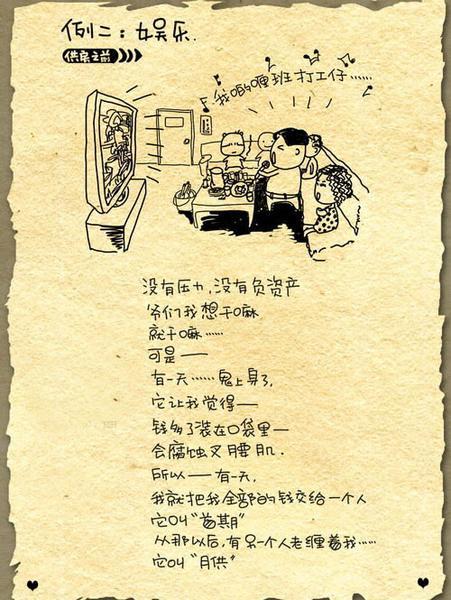 例二：娱乐.
供房之前
我哋呢班打工仔……
没有压力，没有负资产
爷们我想干嘛
就干嘛……
可是——
有一天……鬼上身了，
它让我觉得——
钱多了装在口袋里—
会腐蚀叉腰肌.
所以——有一天，
我就把我全部的钱交给一个人
它叫“首期”
从那以后，有另一个人老缠着我……
它叫“月供”